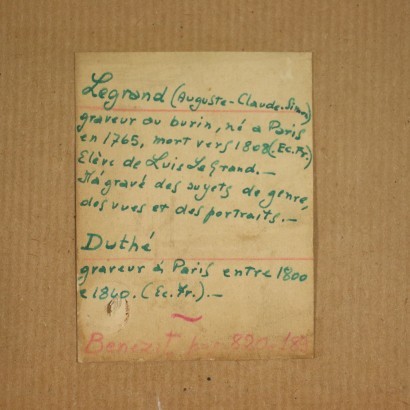 Legrand (Auguste-Claude-Simon)
graveur au burin, né a Paris
en 1765, mort vers 1808 (Ec. Fr.)
Elève de Luis Le Grand.—
Il a gravé des sujets de genre,
des vues et des portraits.—
Duthé
graveur à Paris entre 1800
e 1840. (Ec. Fr.).—
Benezit 820-185